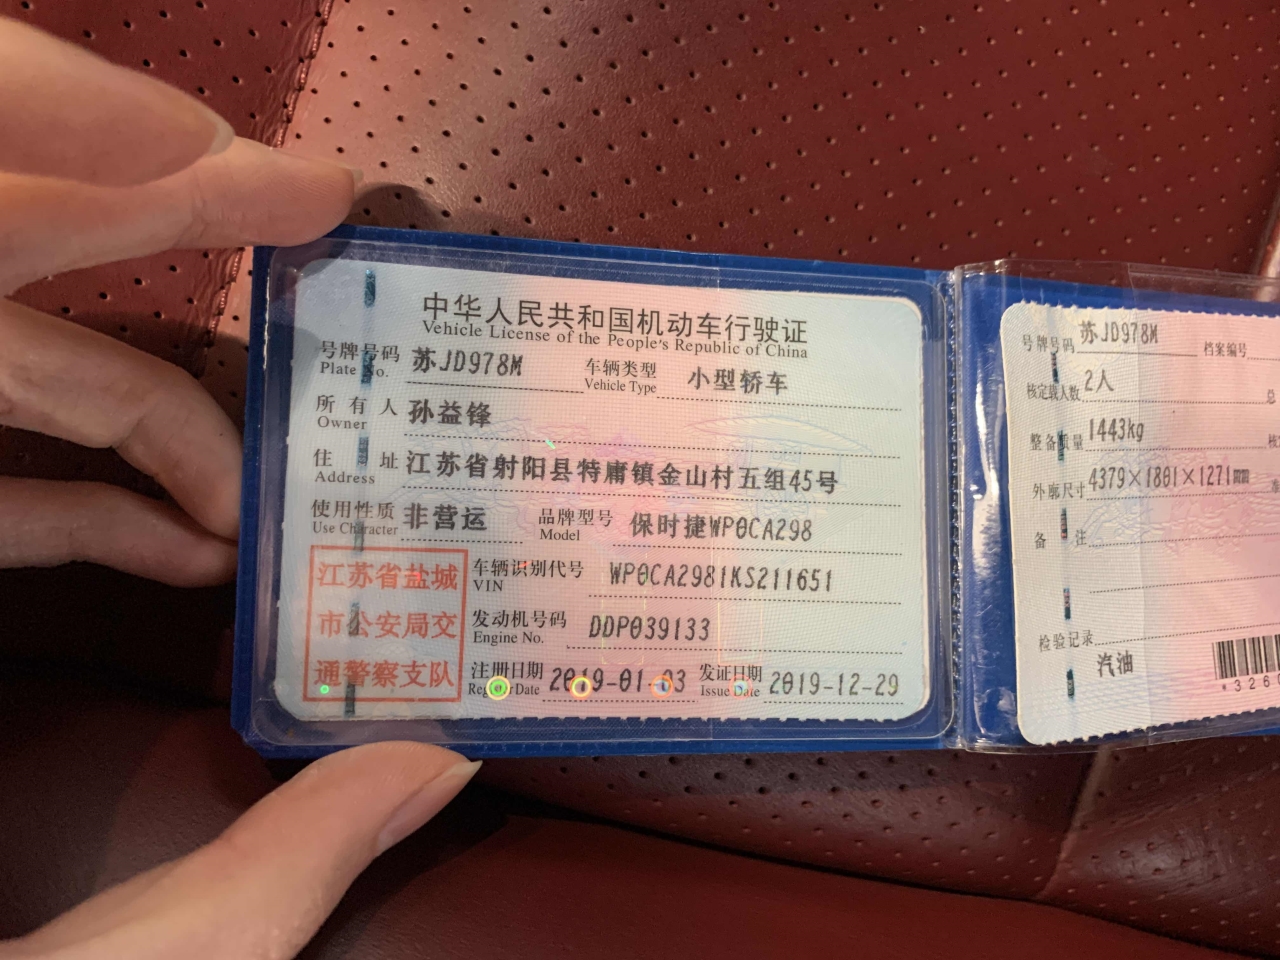 中华人民共和国机动车行驶证
Vehicle License of the People's Republic of China
号牌号码 苏JD978M 车辆类型 小型轿车
Plate No. Vehicle Type
所有人 孙益锋
Owner
住址 江苏省射阳县特庸镇金山村五组45号
Address
使用性质 非营运 品牌型号 保时捷WP0CA298
Use Character Model
江苏省盐城
市公安局交
通警察支队
车辆识别代号 WP0CA2981KS211651
VIN
发动机号码 DDP039133
Engine No.
注册日期 2019-01-03 发证日期 2019-12-29
Register Date Issue Date
号牌号码 苏JD978M 档案编号
核定载人数 2人 总
整备质量 1443kg 核
外廓尺寸 4379×1801×1271mm
备注
检验记录
汽油
*3260